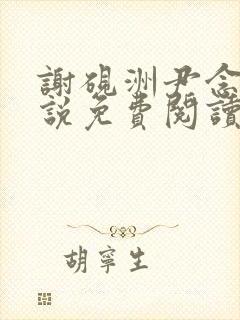 謝硯洲尹念
説免費閱讀
胡寧生